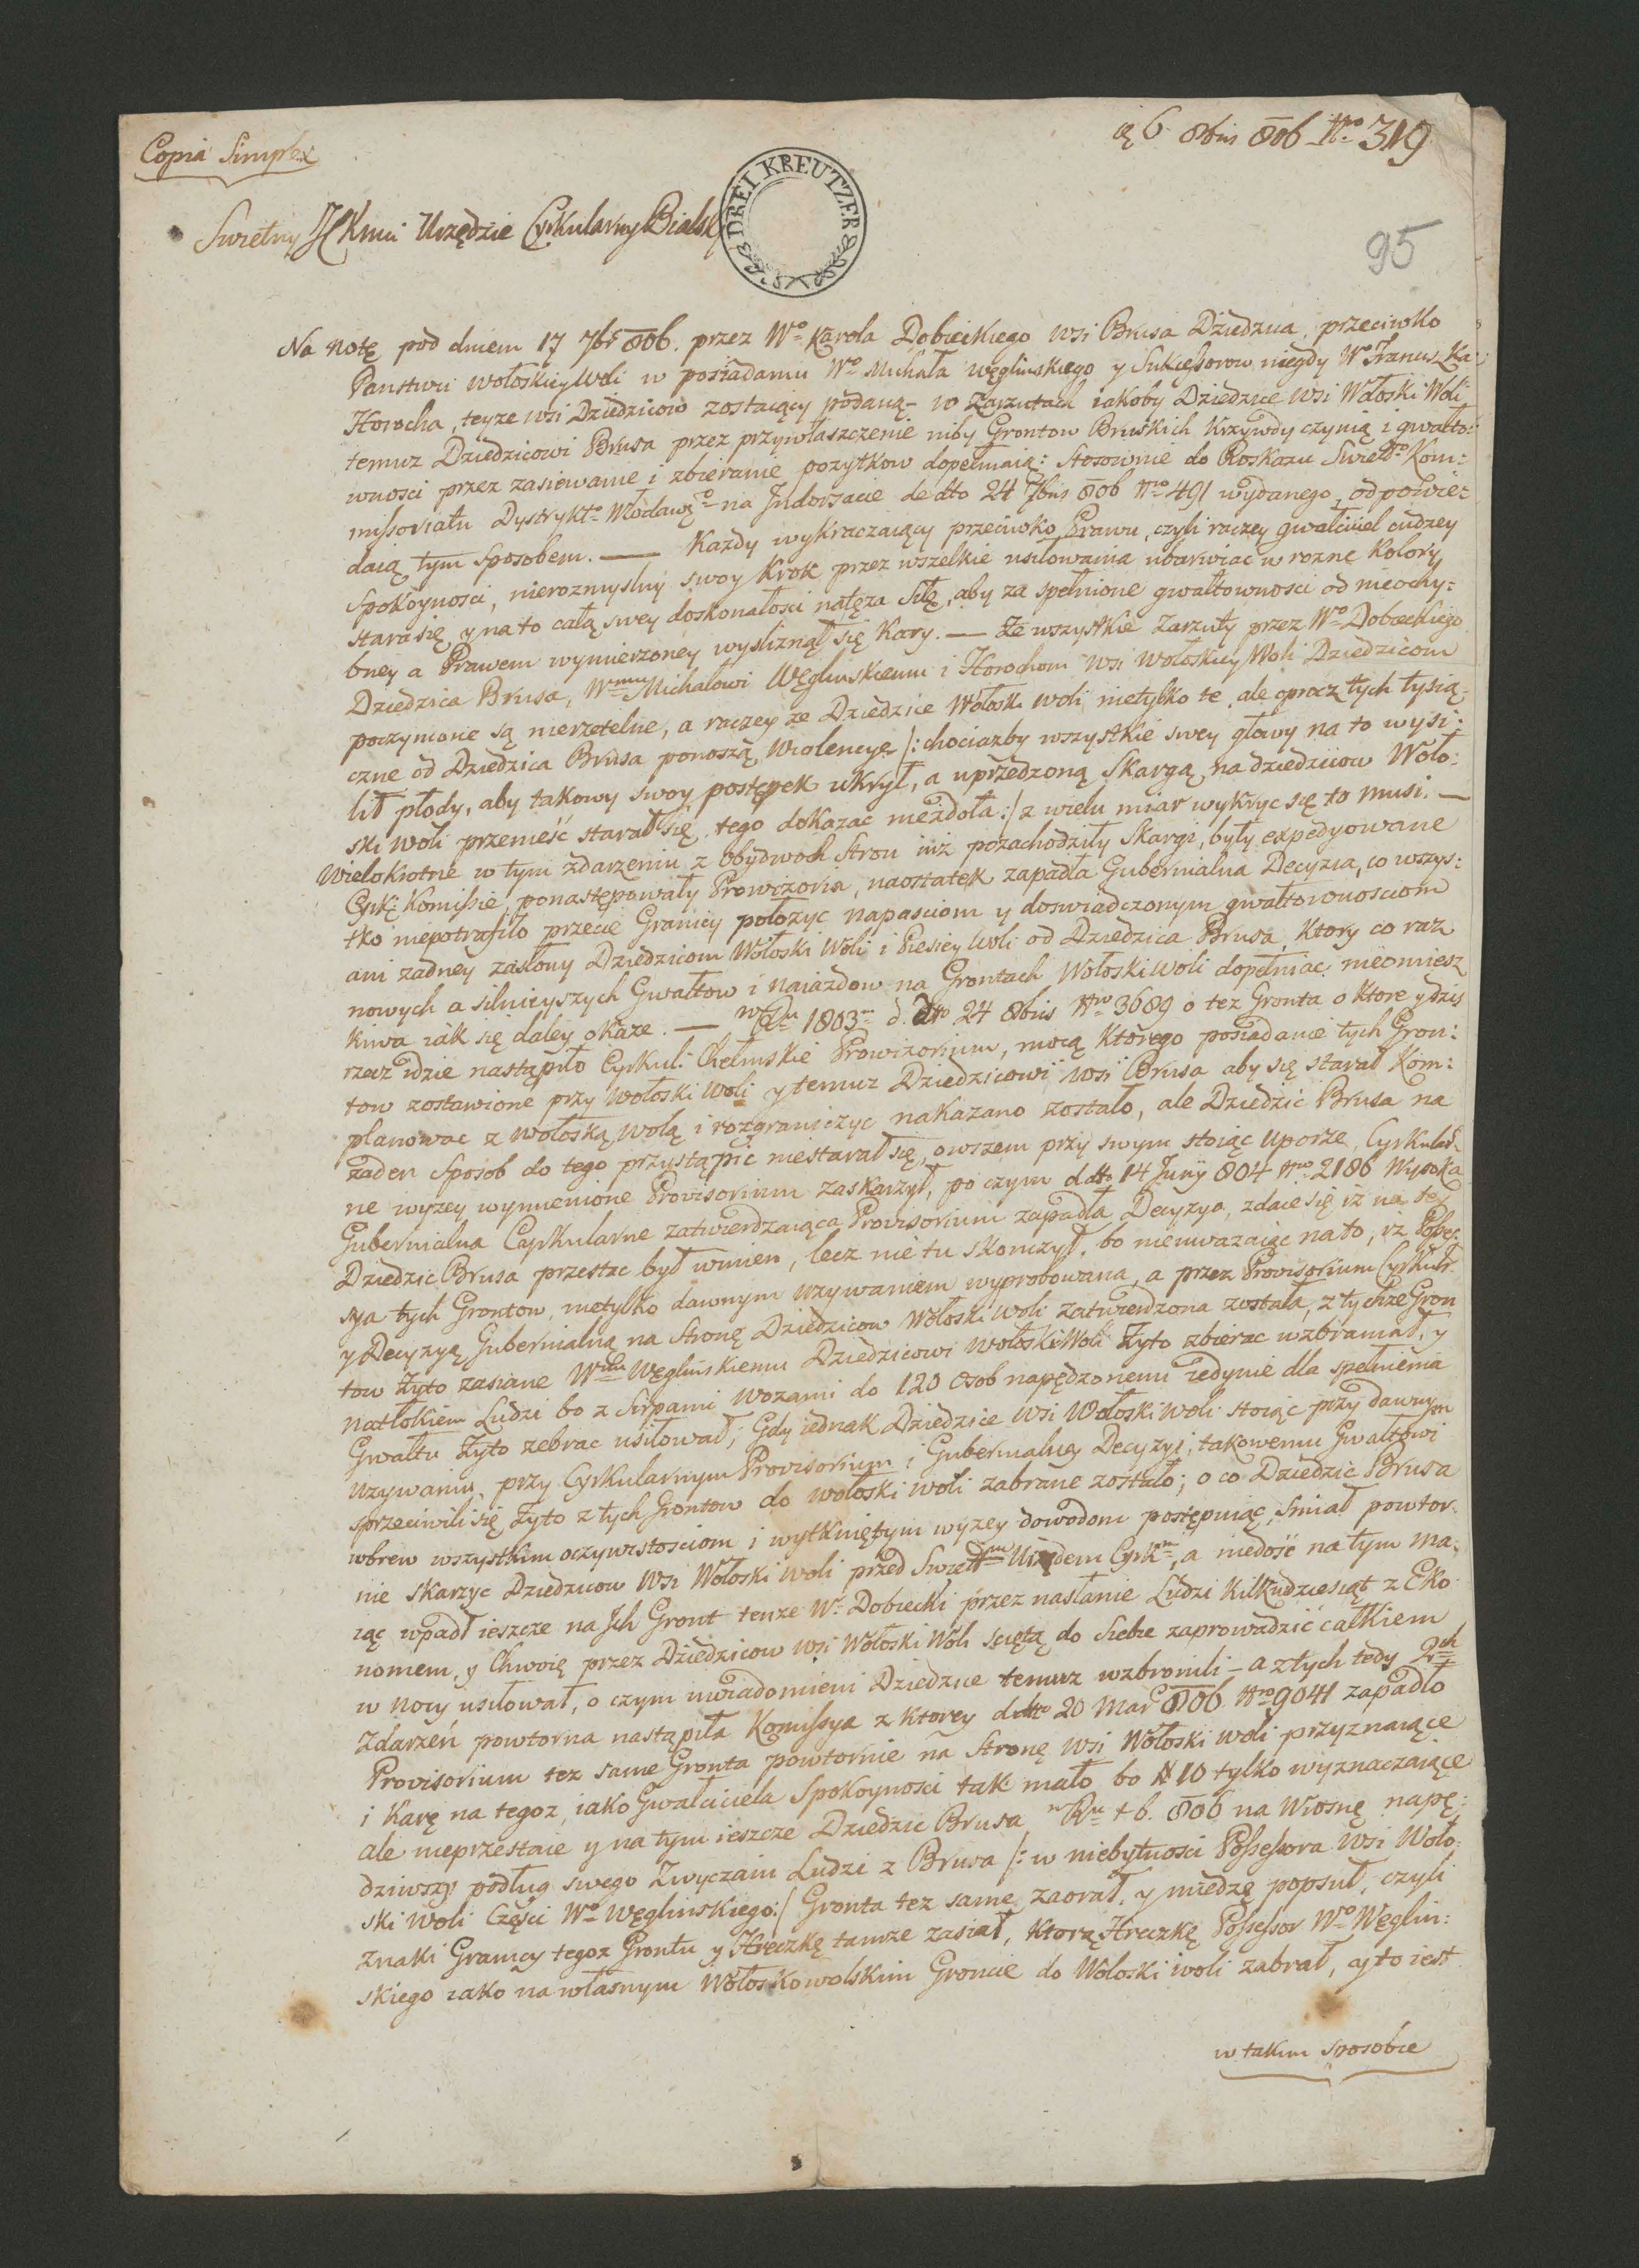 Copia Simplex
6 8bris 806 Nro 319
DREI KREUTZER
Swietny JCKmci Urzędzie Cyrkularny Bialsk
95
Na notę pod dniem 17 7br 806. przez Wo Karola Dobieckiego wsi Brusa Dziedzica przeciwko
Panstwu Wołoskiey Woli w posiadaniu Wo Michała Węglinskiego y Sukcessorow niegdy Wo Franciszka
Horocha, teyze wsi Dziedzicow zostaiący podaną – w Zarzutach iakoby Dziedzice wsi Wołoski Woli
temuz Dziedzicowi Brusa przez przywłaszczenie niby Grontow Bruskich Krzywdy czynią i gwałto:
wnosci przez zasiewanie i zbieranie pozytkow dopełniaią: Stosownie do Roskazu Swieto Kom:
missoriatu Dystrykto Włodawego na Indorsacie de dto 24 7bris 806 Nro 491 wydanego, odpowie:
daią tym sposobem. — Kazdy wykraczaiący przeciwko Prawu, czyli raczey gwałciciel cudzey
Spokoynosci, nierozmyslny swoy Krok przez wszelkie usiłowania ubarwiac w rozne Kolory
stara się, y na to całą swey doskonałosci natęza Siłę, aby za spełnione gwałtownosci od nieochy:
bney a Prawem wymierzoney wysliznął się Kary. — Ze wszystkie Zarzuty przez Wo Dobieckiego
Dziedzica Brusa, Wmu Michałowi Węglinskiemu i Horochom wsi Wołoskiey Woli Dziedzicom
poczynione są nierzetelne, a raczey ze Dziedzice Wołoski Woli nietylko te, ale oprocz tych tysią:
czne od Dziedzica Brusa ponoszą Wiolencye /: chociazby wszystkie swey głowy na to wysi:
lił płody, aby takowy swoy postępek ukrył, a uprzedzoną Skargą na dziedzicow Woło:
ski Woli przenieść starał się, tego dokazac niezdoła :/ z wielu miar wykryc się to musi. —
Wielokrotne w tym zdarzeniu z obydwoch Stron iuz pozachodziły Skargi, były expedyowane
Cyrk: Komissie, ponastępowały Prowizoria, naostatek zapadła Gubernialna Decyzia, co wszys:
tko niepotrafiło przecie Granicy połozyc napasciom y doswiadczonym gwałtownosciom
ani zadney zasłony Dziedzicom Wołoski Woli i Piesiey Woli od Dziedzica Brusa, Ktory co raz
nowych a silnieyszych Gwałtow i naiazdow na Grontach Wołoski Woli dopełniac nieomiesz
kiwa iak się daley okaze. — w Rku 1803m d. dto 24 8bris Nro 3689 o tez Gronta o ktore y dzis
rzecz idzie nastąpiło Cyrkul: Chełmskie Prowizorium, mocą Ktorego posiadanie tych Gron:
tow zostawione przy Wołoski Woli y temuz Dziedzicowi wsi Brusa aby się starał Kom:
planowac z Wołoską Wolą i rozgraniczyc nakazano zostało, ale Dziedzic Brusa na
zaden Sposob do tego przystąpic niestarał się, owszem przy swym stoiąc uporze Cyrkular
ne wyzey wymienione Provisorium zaskarzył, po czym d dto 14 Junij 804 Nro 2186 Wysoka
Gubernialna Cyrkularne zatwierdzaiąca Provisorium zapadła Decyzya, zdaie się iz na tey
Dziedzic Brusa przestac był winien, lecz nie tu skonczył, bo nieuwazaiąc na to, iz Posses
sya tych Grontow, nietylko dawnym uzywaniem wyprobowana, a przez Provisorium Cyrkuł:
y Decyzyą Gubernialną na Stronę Dziedzicow Wołoski Woli zatwierdzona została, z tychze Gron
tow Zyto zasiane Wmu Węglinskiemu Dziedzicowi Wołoski Woli Zyto zbierac wzbraniał, y
natłokiem Ludzi bo z Sierpami Wozami do 120 Osob napędzonemi iedynie dla spełnienia
Gwałtu Zyto zebrac usiłował; Gdy iednak Dziedzice wsi Wołoski Woli stoiąc przy dawnym
Uzywaniu, przy Cyrkularnym Provisorium i Gubernialney Decyzyi, takowemu Gwałtowi
sprzeciwili się, Zyto z tych Grontow do Wołoski Woli zabrane zostało; o co Dziedzic Brusa
wbrew wszystkim oczywistosciom i wytkniętym wyzey dowodom postępuiąc, smiał powtor
nie skarzyc Dziedzicow wsi Wołoski Woli przed Swietm Urzędem Cyrkm, a niedość na tym ma:
iąc wpadł ieszcze na Ich Gront tenze Wo Dobiecki przez nasłanie Ludzi Kilkudziesiąt z Eko
nomem, y Chwoię przez Dziedzicow wsi Wołoski Woli sciętą do Siebie zaprowadzić całkiem
w Nocy usiłował, o czym uwiadomieni Dziedzice temuz wzbronili – a z tych tedy 2ch
Zdarzeń powtorna nastąpiła Komissya z Ktorey d dto 20 Mar 806 Nro 9041 zapadło
Provisorium tez same Gronta powtornie na Stronę wsi Wołoski Woli przyznaiące
i Karę na tegoz, iako Gwałciciela Spokoynosci tak mało bo # 10 tylko wyznaczaiące
ale nieprzestaie y na tym ieszcze Dziedzic Brusa, w Rku t b. 806 na Wiosnę napę:
dziwszy podług swego Zwyczaiu Ludzi z Brusa /: w niebytnosci Possessora wsi Woło:
ski Woli Części Wo Węglinskiego :/ Gronta tez same zaorał, y miedzę popsuł, czyli
znaki Granicy tegoz Grontu y Hreczkę tamze zasiał, Ktorą Hreczkę Possessor Wo Węglin:
skiego iako na własnym Wołoskowolskim Groncie do Wołoski Woli zabrał, a to iest
w takim sposobie